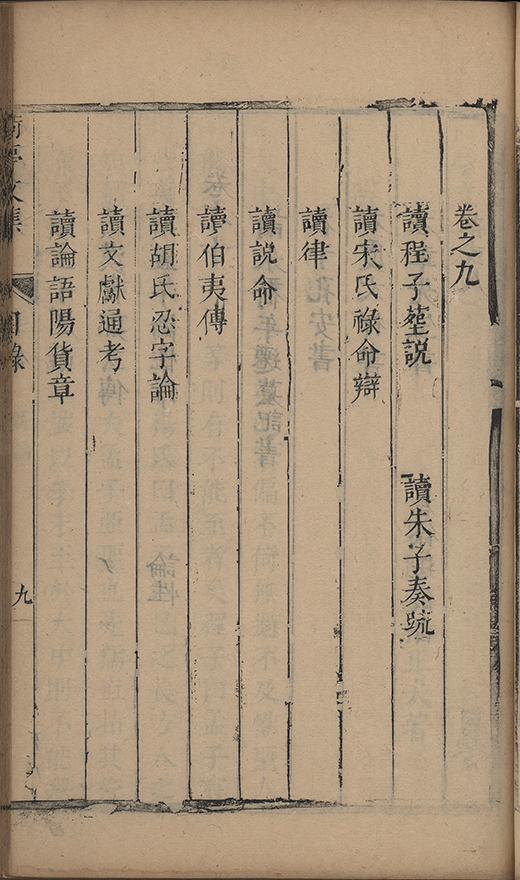 卷之九
讀程子葬說　讀朱子奏疏
讀宋氏祿命辯
讀律
讀說命
讀伯夷傳
讀胡氏忍字論
讀文獻通考
讀論語陽貨章
文集 目錄 九